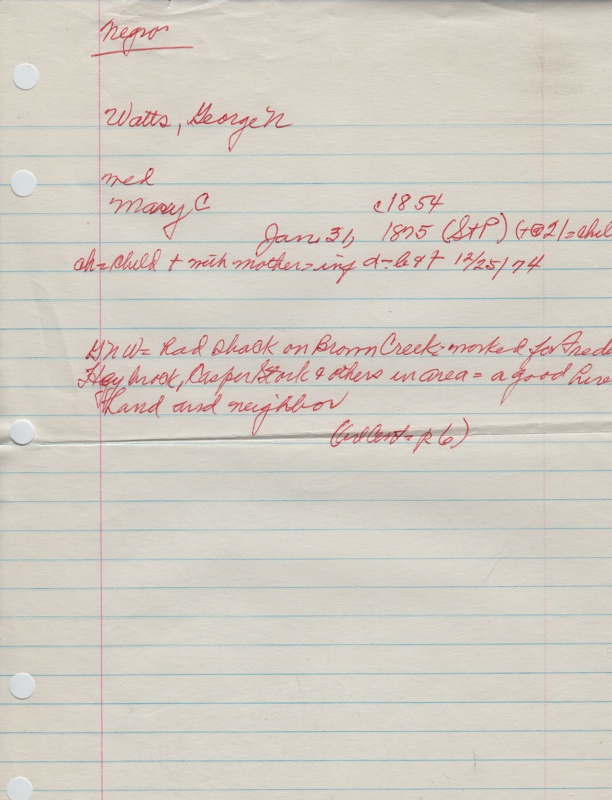 Negros
Watts, George N
med
Mary C c1854
Jan. 31, 1875 (S+P) (+@21=chil
ch=child + with mother=ing d= le 4 + 12/25/74
GNW= had shack on Brown Creek= worked for Frede
Haybrock, Casper Stork & others in area = a good hire
hand and neighbor
p 6)